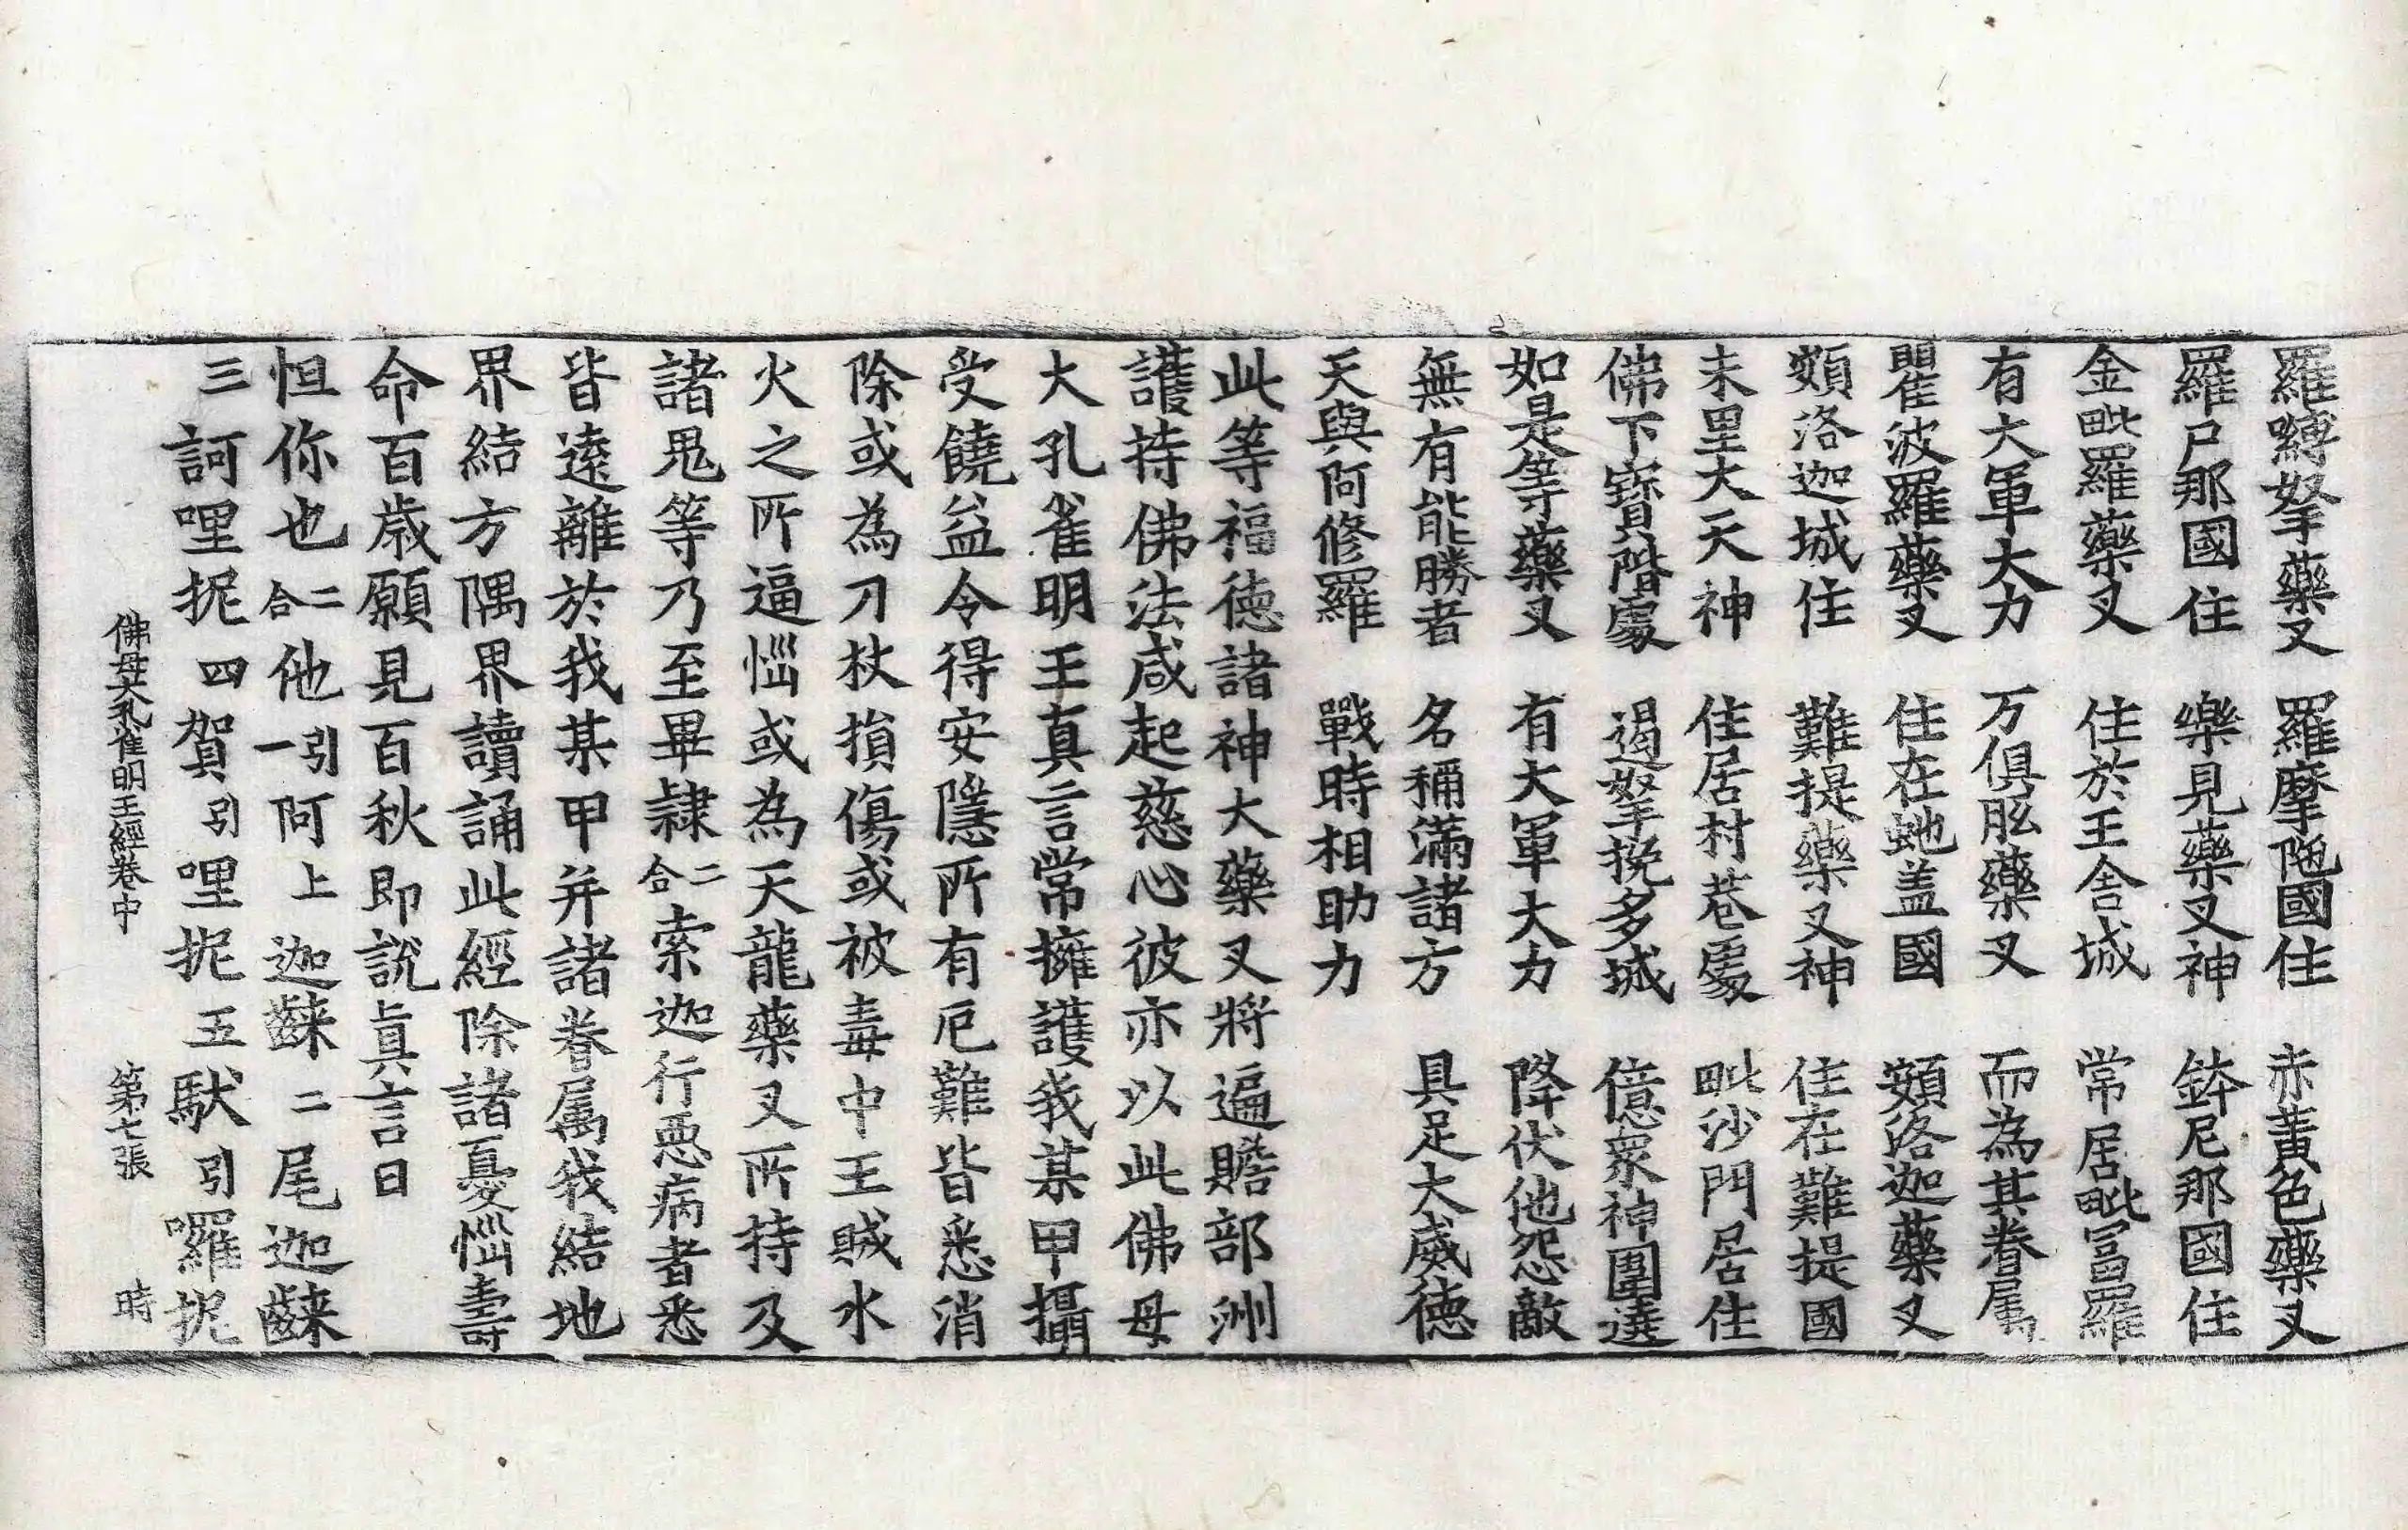 羅嚩拏藥叉　羅摩陁國住　赤黃色藥叉
羅尸那國住　樂見藥叉神　鉢尼那國住
金毗羅藥叉　住於王舍城　常居毗冨羅
有大軍大力　万俱胝藥叉　而為其眷属
瞿波羅藥叉　住在虵盖國　頞洛迦藥叉
頞洛迦城住　難提藥叉神　住在難提國
末里大天神　住居村巷處　毗沙門居住
佛下寶階處　遏拏挽多城　億衆神圍遶
如是等藥叉　有大軍大力　降伏他怨敵
無有能勝者　名稱滿諸方　具足大威德
天與阿修羅　戰時相助力
此等福德諸神大藥叉將遍贍部洲
護持佛法咸起慈心彼亦以此佛母
大孔雀明王真言常擁護我某甲攝
受饒益令得安隱所有厄難皆悉消
除或為刀杖損傷或被毒中王賊水
火之所逼惱或為天龍藥叉所持及
諸鬼等乃至畢隷二合索迦行悪病者悉
皆遠離於我某甲并諸眷属我結地
界結方隅界讀誦此經除諸憂惱壽
命百歲願見百秋即說真言曰
怛你也二合他引一阿上迦䶩二尾迦䶩
三訶哩抳四賀引哩抳五馱引囉抳
佛母大孔雀明王經卷中　第七張　時